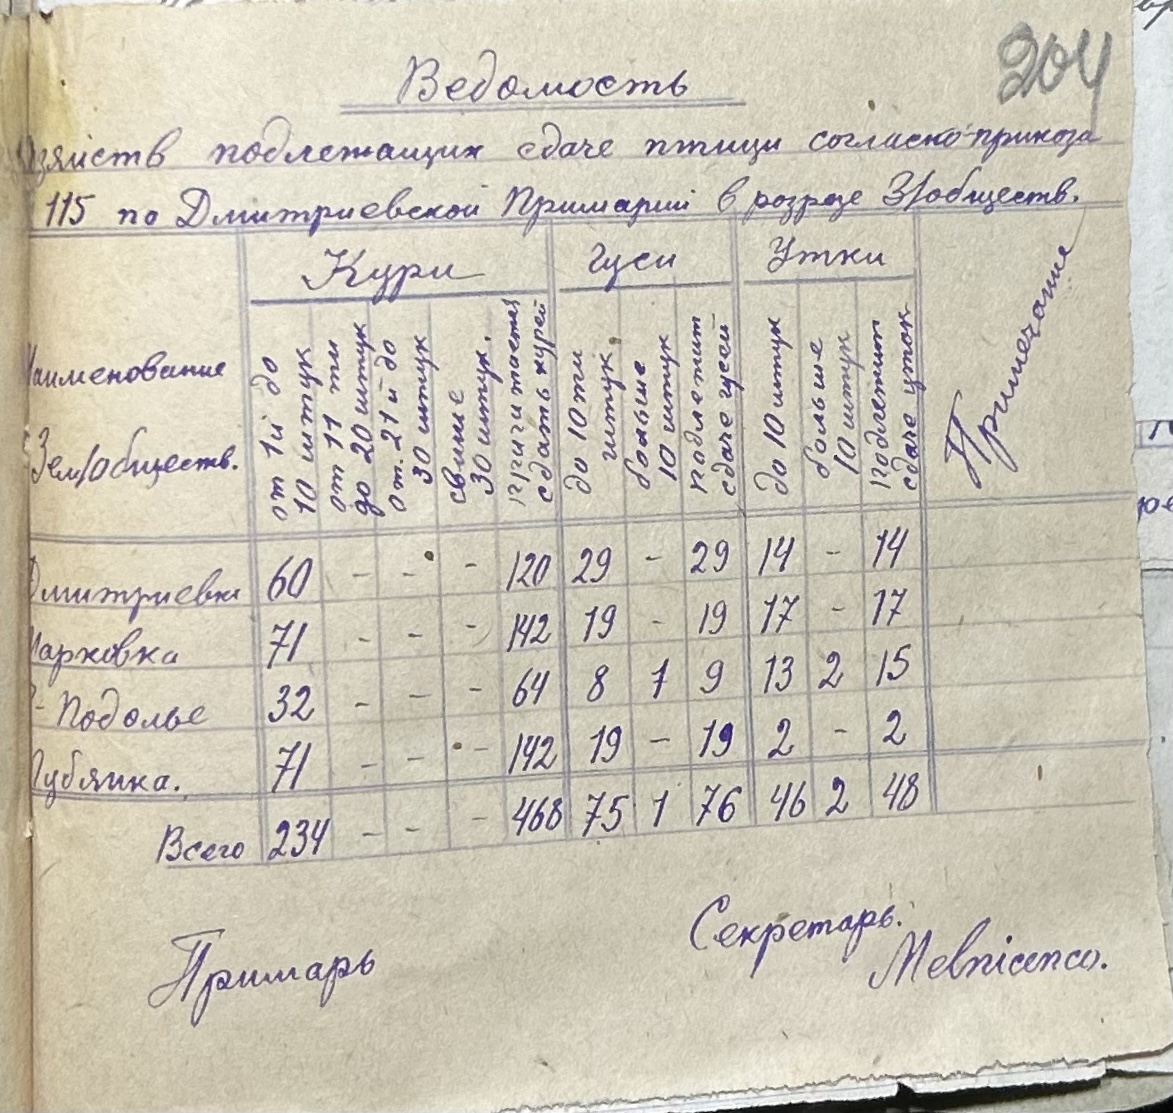 204
Ведомость
зяиств подлежащих сдаче птици согласно приказа
115 по Дмитриевской Примарии в розрезе З/обществ.
Наименование Зем/обществ. Кури Гуси Утки Примечание
от 1й до 10 штук от 11 ти до 20 штук от 21й до 30 штук свише 30 штук. сдать курей до 10 ти штук больше 10 штук подлежит сдаче гусей до 10 штук больше 10 штук подлежит сдаче уток
Дмитриевка 60 - - - 120 29 - 29 14 - 14
Марковка 71 - - - 142 19 - 19 17 - 17
- Подолье 32 - - - 64 8 1 9 13 2 15
Губянка. 71 - - - 142 19 - 19 2 - 2
Всего 234 - - - 468 75 1 76 46 2 48
Секретарь.
Примарь Melnicenco.